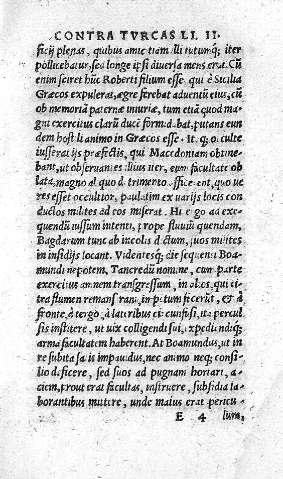 CONTRA TVRCAS LI. II.
ficij plenas, quibus amicitiam illi tutumq; iter
pollicebatur, sed longe ipsi diuersa mens erat. Cũ
enim sciret hũc Roberti filium esse, qui è Sicilia
Græcos expulerat, ægre ferebat aduentũ eius, cũ
ob memoriã paternæ iniuriæ, tum etiã quod ma-
gni exercitus clarũ ducẽ formidabat, putans eun
dem hostili animo in Græcos esse. Itaq; occulte
iusserat ijs præfectis, qui Macedoniam obtine
bant, ut obseruantes illius iter, eum facultate ob
lata, magno aliquo detrimento afficerent, quo ue
res esset occultior, paulatim ex varijs locis con
ductos milites ad eos miserat. Hi ergo ad exe-
quendũ iussum intenti, prope fluuiũ quendam,
Bagdarum tunc ab incolis dictum, suos milites
in insidijs locant. Videntesq; dic sequenti Boa-
mundi nepotem, Tancredũ nomine, cum parte
exercitus amnem transgressum, in alios, qui ci-
tra flumen remanserant, impetum fecerũt, & à
fronte, à tergo, à lateribus circunfusi, ita percul
sis institere, ut uix colligendi sui, expediendiq;
arma facultatem haberent. At Boamundus, ut in
re subita satis impauidus, nec animo neq; consi-
lio deficere, sed suos ad pugnam hortari, a-
ciem, prout erat facultas, instruere, subsidia la-
borantibus mittere, unde maius erat pericu-
E 4 lum,